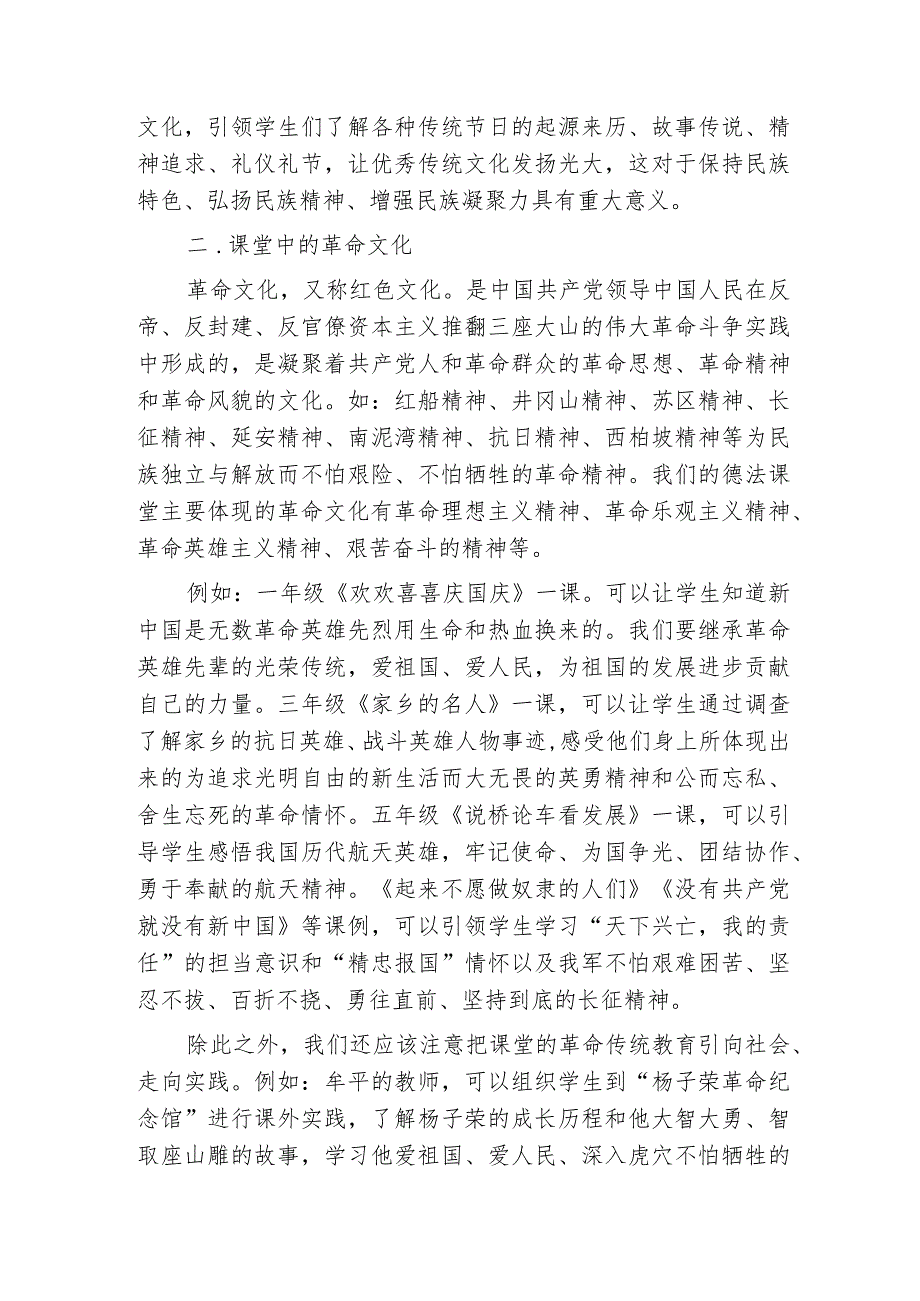 文化，引领学生们了解各种传统节日的起源来历、故事传说、精
神追求、礼仪礼节，让优秀传统文化发扬光大，这对于保持民族
特色、弘扬民族精神、增强民族凝聚力具有重大意义。
二 . 课堂中的革命文化
革命文化，又称红色文化。是中国共产党领导中国人民在反
帝、反封建、反官僚资本主义推翻三座大山的伟大革命斗争实践
中形成的，是凝聚着共产党人和革命群众的革命思想、革命精神
和革命风貌的文化。如：红船精神、井冈山精神、苏区精神、长
征精神、延安精神、南泥湾精神、抗日精神、西柏坡精神等为民
族独立与解放而不怕艰险、不怕牺牲的革命精神。我们的德法课
堂主要体现的革命文化有革命理想主义精神、革命乐观主义精神、
革命英雄主义精神、艰苦奋斗的精神等。
例如：一年级《欢欢喜喜庆国庆》一课。可以让学生知道新
中国是无数革命英雄先烈用生命和热血换来的。我们要继承革命
英雄先辈的光荣传统，爱祖国、爱人民，为祖国的发展进步贡献
自己的力量。三年级《家乡的名人》一课，可以让学生通过调查
了解家乡的抗日英雄、战斗英雄人物事迹,感受他们身上所体现出
来的为追求光明自由的新生活而大无畏的英勇精神和公而忘私、
舍生忘死的革命情怀。五年级《说桥论车看发展》一课，可以引
导学生感悟我国历代航天英雄，牢记使命、为国争光、团结协作、
勇于奉献的航天精神。《起来不愿做奴隶的人们》《没有共产党
就没有新中国》等课例，可以引领学生学习“天下兴亡，我的责
任”的担当意识和“精忠报国”情怀以及我军不怕艰难困苦、坚
忍不拔、百折不挠、勇往直前、坚持到底的长征精神。
除此之外，我们还应该注意把课堂的革命传统教育引向社会、
走向实践。例如：牟平的教师，可以组织学生到“杨子荣革命纪
念馆”进行课外实践，了解杨子荣的成长历程和他大智大勇、智
取座山雕的故事，学习他爱祖国、爱人民、深入虎穴不怕牺牲的